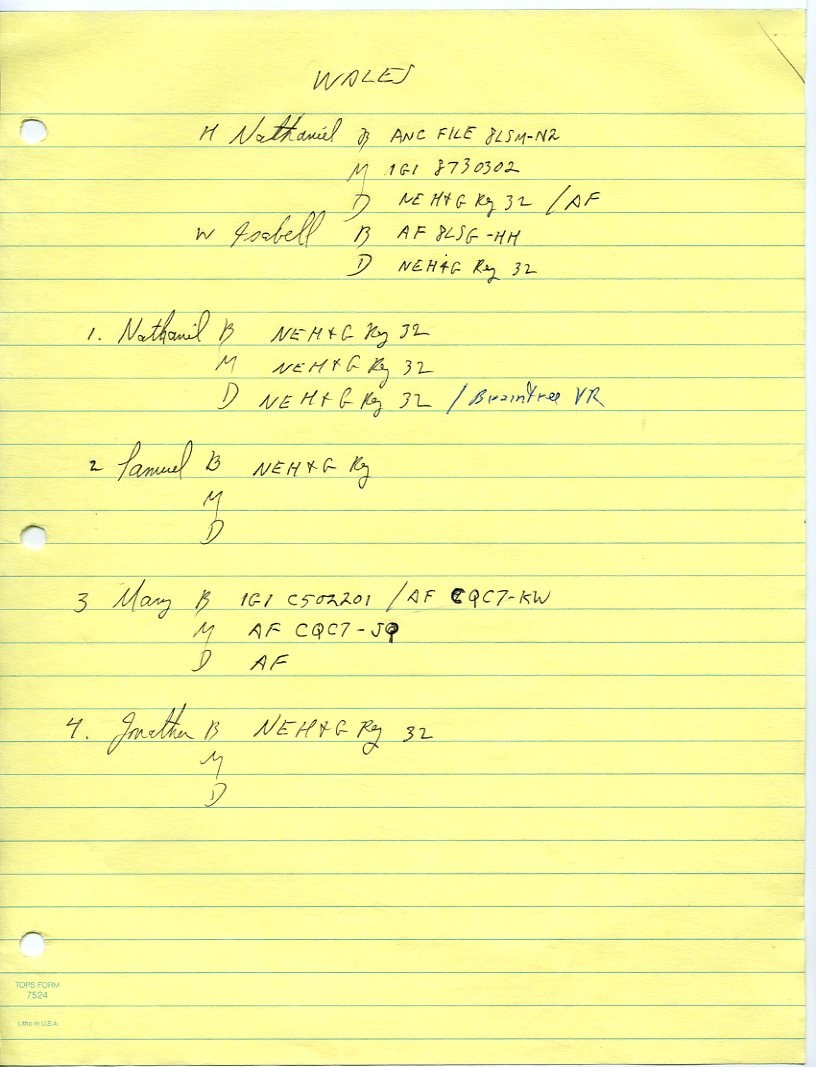 WALES
H Nathaniel B ANC FILE 8LSM-N2
M IGI 8730302
D NEH&G Reg 32 / AF
W Isabell B AF 8LSG-HH
D NEH&G Reg 32
1. Nathanil B NEH&G Reg 32
M NEH&G Reg 32
D NEH&G Reg 32 / Braintree VR
2 Samuel B NEH&G Reg
M
D
3 Mary B IGI C502201 / AF CQC7-KW
M AF CQC7-JQ
D AF
4. Jonathan B NEH&G Reg 32
M
D
TOPS FORM
7524
Litho in U.S.A.